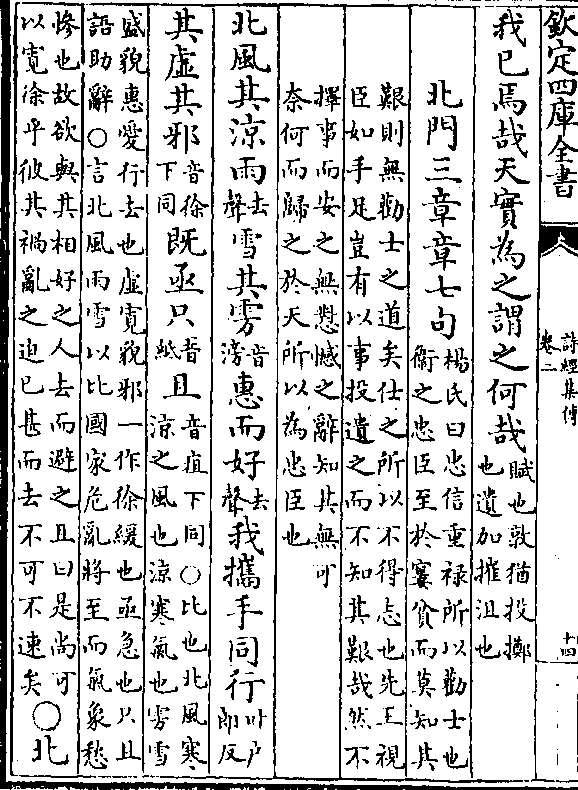 欽定四庫全書
詩經集傳
卷二
十四
我已焉哉天實為之謂之何哉賦也敦猶投擲
也遺加摧沮也
北門三章章七句楊氏曰忠信重祿所以勸士也
衛之忠臣至於窶貧而莫知其
艱則無勸士之道矣仕之所以不得志也先王視
臣如手足豈有以事投遺之而不知其艱哉然不
擇事而安之無懟憾之辭知其無可
奈何而歸之於天所以為忠臣也
北風其涼雨去聲雪其雱音滂惠而好去聲我攜手同行叶戶郎反
其虛其邪音徐下同既亟只音紙且音疽下同○比也北風寒
涼之風也涼寒氣也雱雪
盛貌惠愛行去也虛寬貌邪一作徐緩也亟急也只且
語助辭○言北風雨雪以比國家危亂將至而氣象愁
慘也故欲與其相好之人去而避之且曰是尚可
以寬徐乎彼其禍亂之迫已甚而去不可不速矣○北